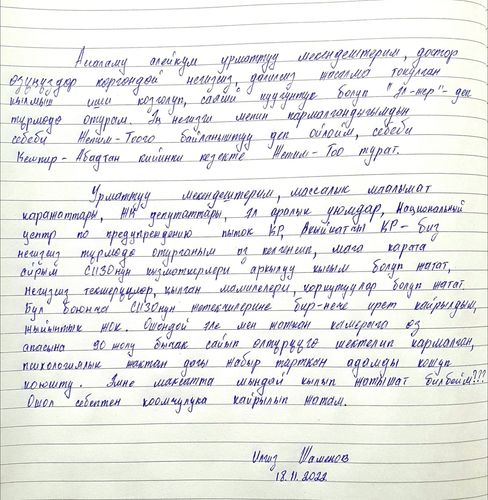 Ассаламу алейкум урматтуу мекендештерим, достор
өзүңүздөр көргөндөй негизсиз, далилсиз жасалма токулган
кылмыш иши козголуп, саясий куугунтук болуп "31-нер"- деп
түрмөдө отурам. Эң негизги менин кармалгандыгымдын
себеби Жетим-Тоого байланыштуу деп ойлойм, себеби
Кемпир-Абадтан кийинки кезекте Жетим-Тоо турат.
Урматтуу мекендештерим, массалык маалымат
каражаттары, ЖК депутаттары, эл аралык уюмдар, Национальный
центр по предупреждению пыток КР, Акыйкатчы КР - биз
негизсиз түрмөдө отурганым аз келгенсип, мага карата
айрым СИЗОнун кызматкерлери аркылуу кысым болуп жатат,
Негизсиз текшерүүлөр, кылган мамилелери, коркутуулар болуп жатат.
Бул боюнча СИЗОнун жетекчилерине бир-нече ирет кайрылдым,
жыйынтык жок. Ошондой эле мен жаткан камерага өз
апасына 90 жолу бычак сайып өлтүрүүгө шектелип кармалган,
психологиялык жактан дагы жабыр тарткан адамды кошуп
коюшту. Эмне максатта мындай кылып жатышат билбейм???
Ошол себептен коомчулукка кайрылып жатам.
Илгиз Шаменов
18.11.2022